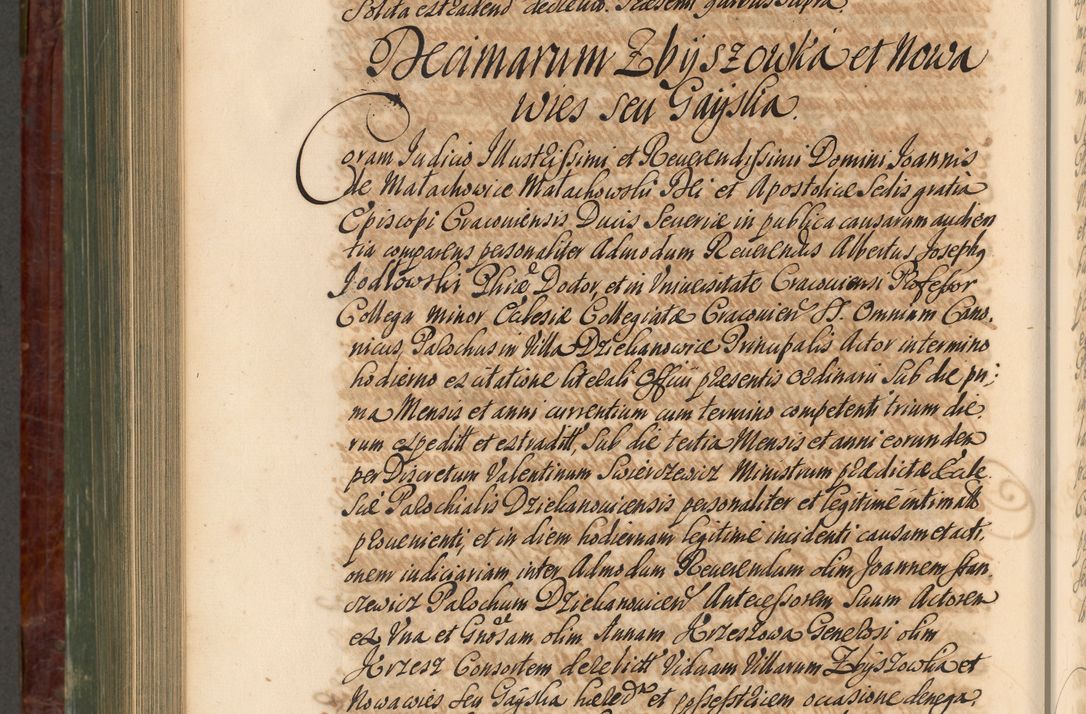 Solita est eadend decretio. Præsenti quibus supra.
Decimarum Zbijszowka et Nowa
wies seu Gaijska.
Coram Judicio Illustrissimi et Reverendissimi Domini Joannis
de Małachowice Małachowski Dei et Apostolicæ Sedis gratia
Episcopi Cracoviensis Ducis Severiæ in publica causarum audien
tia comparens personaliter Admodum Reverendus Albertus Joseph9
Jodłowski Phiæ Doctor, et in Universitate Cracoviensi Professor
Collega Minor Ecclesiæ Collegiatæ Cracovien SS. Omnium Cano.
nicus, Parochus in Villa Dziekanowice Principalis Actor in termino
hodierno ex citatione literali Officii præsentis ordinarii Sub die pri;
ma Mensis et anni currentium cum termino competenti trium die,
rum expeditt et extraditt, Sub die tertia Mensis et anni eorunden
per Discretum Valentinum Swierczewicz Ministrum prædictæ Eccle.
siæ Parochialis Dziekanoviensis personaliter et legitime intimatt
provenienti, et in diem hodiernam legitime incidenti causam et acti.
onem iudiciariam inter Admodum Reverendum olim Joannem Fran
czewicz Parochum Dziekanovicen Antecessorem Suum Actorem
ex Una et Gnosam olim Annam Krzeszowa Generosi olim
Krzesz Consortem derelictt Viduam Villarum Zbijszowka et
Nowawies seu Gaijska hæred et possesstricem occasione denega,